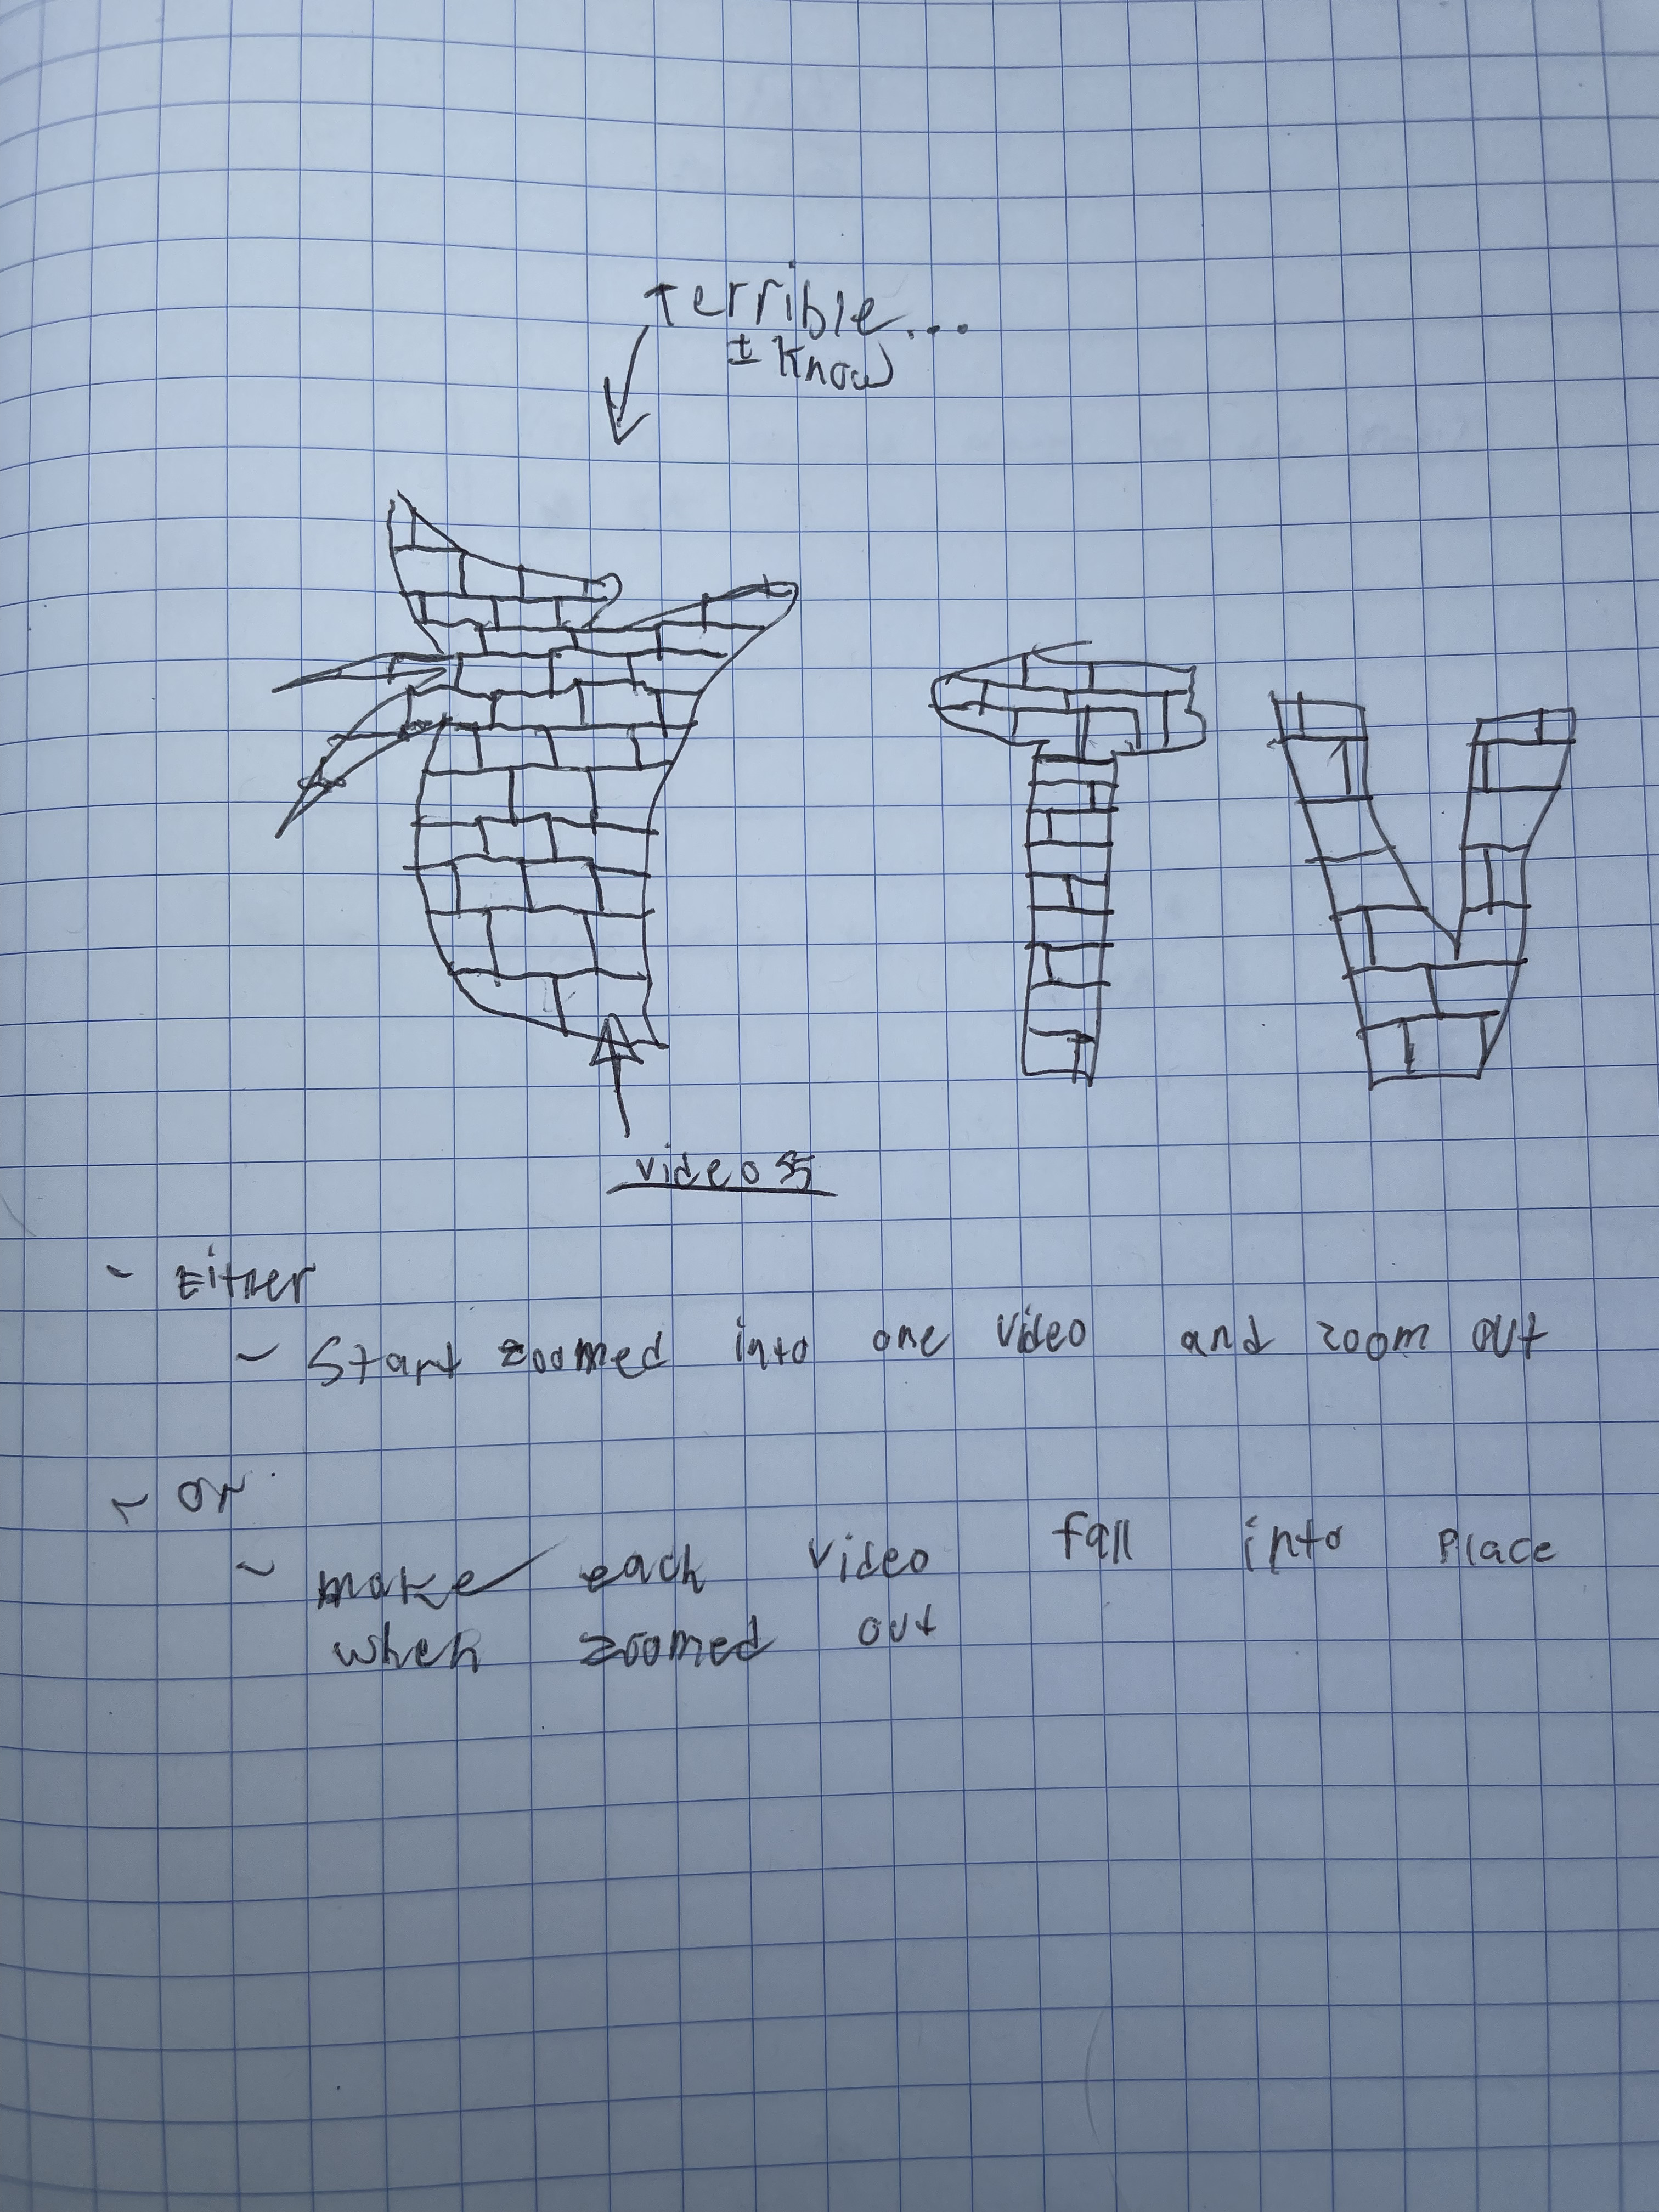 Terrible...
I know
TV
videos
- Either
- Start zoomed into one video and zoom out
- or
- make each video fall into place
when zoomed out